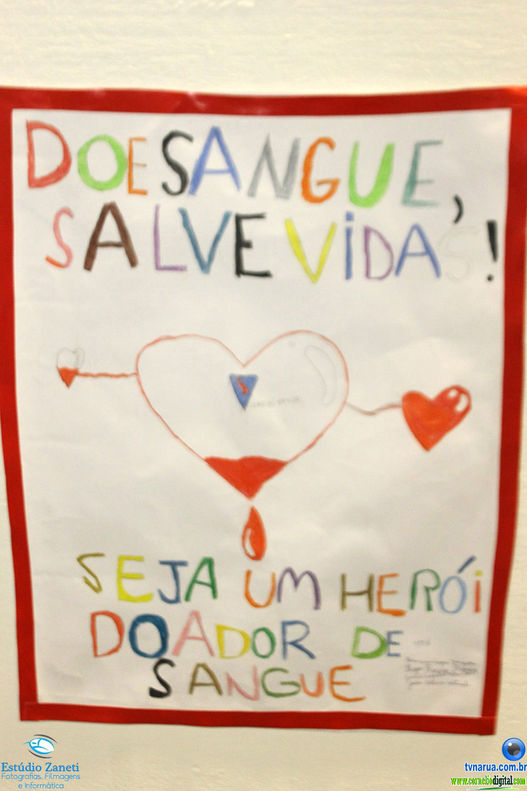 DOE SANGUE,
SALVE VIDAS!
S
SEJA UM HERÓI
DOADOR DE
SANGUE
Estúdio Zaneti
Fotografias, Filmagens
e Informática
tvnarua.com.br
www.corneliodigital.com